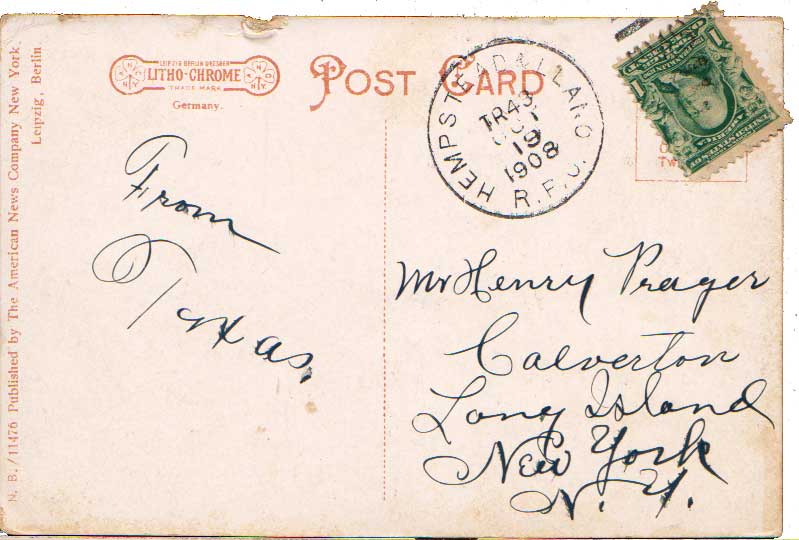 N. B./11476 Published by The American News Company New York
Leipzig, Berlin
LEIPZIG BERLIN DRESDEN
LITHO-CHROME
TRADE MARK
Germany.
POST CARD
HEMPSTEAD & LLANO
TR43
19
1908
R.P.O.
1
1
From
Texas.
Mr Henry Prager
Calverton
Long Island
New York
N. Y.